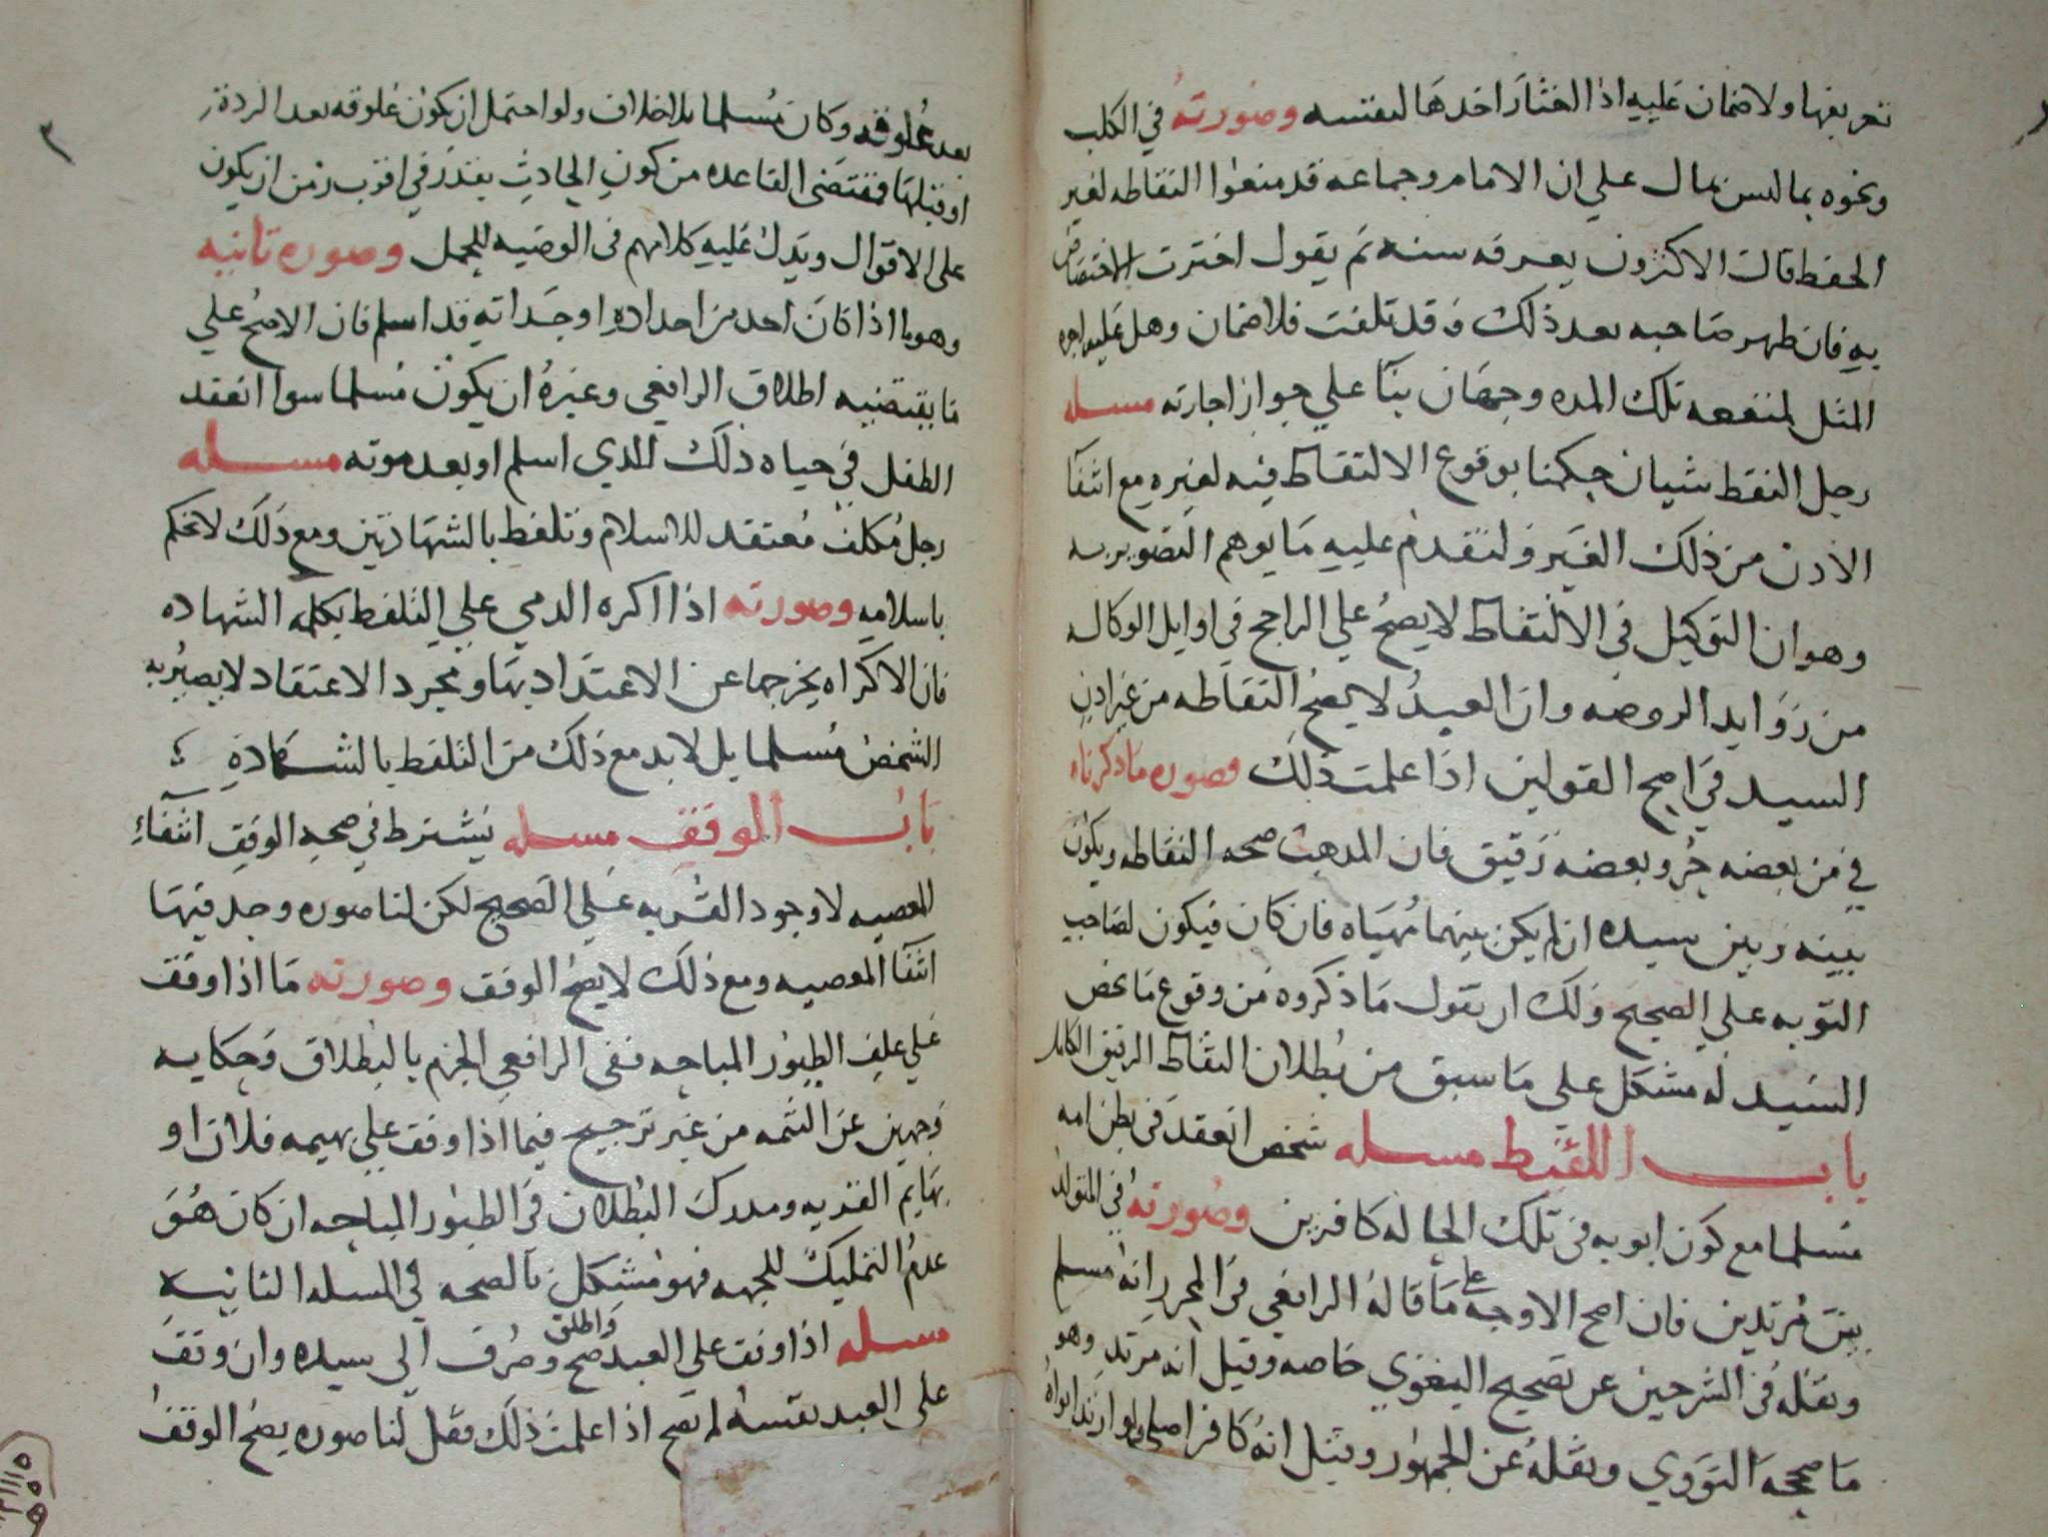 تعريفها ولا ضمان عليه اذا اختار اخدها لنفسه وصورته في الكلب
ونحوه بما ليس بمال علي ان الامام وجماعه قد منعوا التقاطه لغير
الحفظ قالت الاكثرون يعرفه سنه ثم يقول اخترت الاختصاص
به فان ظهر صاحبه بعد ذلك وقد تلفت فلا ضمان وهل عليه اجره
المثل لمنفعه تلك المده وجهان بنا علي جواز اجارته مسله
رجل التقط شيا حكمنا بوقوع الالتقاط فيه لغيره مع انتفا
الاذن من ذلك الغير ولنقدم عليه ما يوهم التصوير به
وهو ان التوكيل في الالتقاط لا يصح علي الراجح في اوايل الوكاله
من زوايد الروضه وان العبد لا يصح التقاطه من غير اذن
السيد في اصح القولين اذا علمت ذلك وصوره ما ذكرناه
في من بعضه حر وبعضه رقيق فان المذهب صحه التقاطه ويكون
بينه وبين سيده ان لم يكن بينهما مهياه فان كان فيكون لصاحب
النوبه علي الصحيح ولك ان تقول ما ذكروه من وقوع ما يخص
السيد له مشكل علي ما سبق من بطلان التقاط الرقيق الكامل
باب اللقيط مسله شخص انعقد في بطن امه
مسلما مع كون ابويه في تلك الحاله كافرين وصورته في المتولد
بين مرتدين فان اصح الاوجه علي ما قاله الرافعي في المحرر انه مسلم
ونقله في الشرحين عن تصحيح البغوي خاصه وقيل انه مرتد وهو
ما صححه النووي ونقله عن الجمهور وقيل انه كافر اصلي ولو ارتد ابواه
بعد علوقه وكان مسلما بلا خلاف ولو احتمل ان يكون علوقه بعد الرده
او قبلها فمقتضى القاعده من كون الحادث يقدر في اقرب زمن ان يكون
على الاقوال ويدل عليه كلامهم في الوصيه للحمل وصوره ثانيه
وهو ما اذا كان احد من اجداده او جداته قد اسلم فان الاصح علي
ما يقتضيه اطلاق الرافعي وغيره ان يكون مسلما سوا انعقد
الطفل في حياه ذلك الذي اسلم او بعد موته مسله
رجل مكلف معتقد للاسلام وتلفظ بالشهادتين ومع ذلك لا نحكم
باسلامه وصورته اذا اكره الذمي علي التلفظ بكلمه الشهاده
فان الاكراه يخرجها عن الاعتداد بها ومجرد الاعتقاد لا يصير به
الشخص مسلما بل لا بد مع ذلك من التلفظ بالشهادة
باب الوقف مسله يشترط في صحه الوقف انتفاء
المعصيه لا وجود القربه علي الصحيح لكن لنا صوره وجد فيها
انتفا المعصيه ومع ذلك لا يصح الوقف وصورته ما اذا وقف
علي علف الطيور المباحه ففي الرافعي الجزم بالبطلان وحكايه
وجهين عن التتمه من غير ترجيح فيما اذا وقف علي بهيمه فلان او
بهايم القريه ومدرك البطلان في الطيور المباحه ان كان هو
عدم التمليك للجهه فهو مشكل بالصحه في المسله الثانيه
مسله اذا وقف علي العبد واطلق صح وصرف الى سيده وان وقف
علي العبد نفسه لم يصح اذا علمت ذلك فقل لنا صوره يصح الوقف